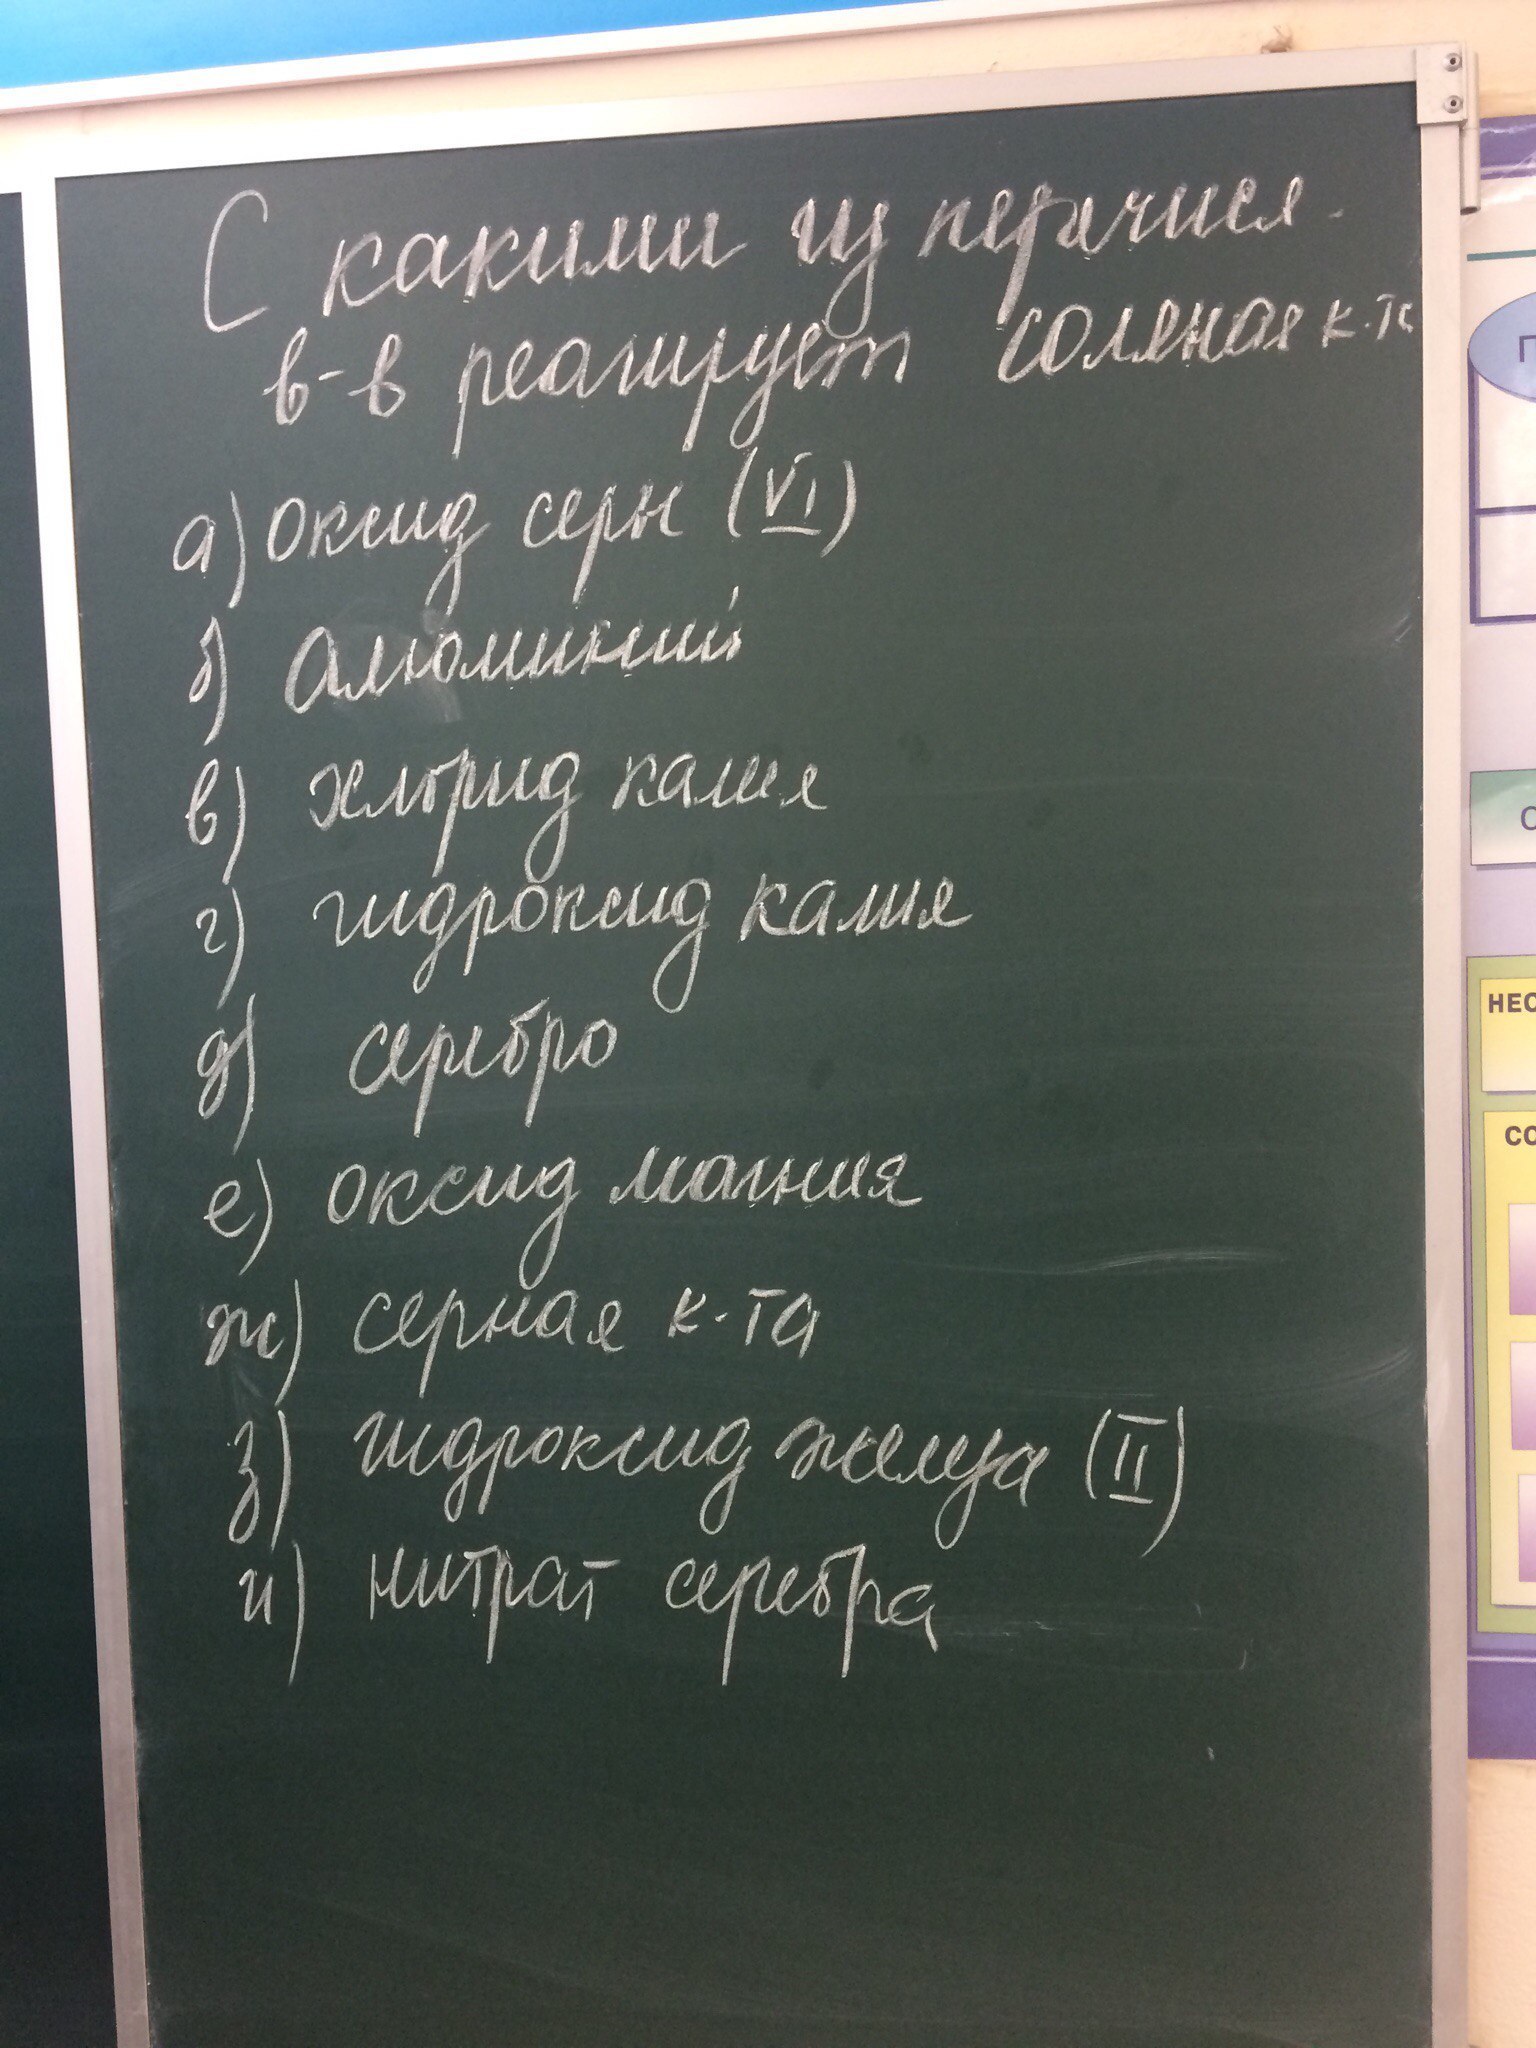 С какими из перечисл.
в-в реагирует соляная к-та
а) оксид серы (VI)
б) алюминий
в) хлорид калия
г) гидроксид калия
д) серебро
е) оксид магния
ж) серная к-та
з) гидроксид железа (II)
и) нитрат серебра
НЕС
СО